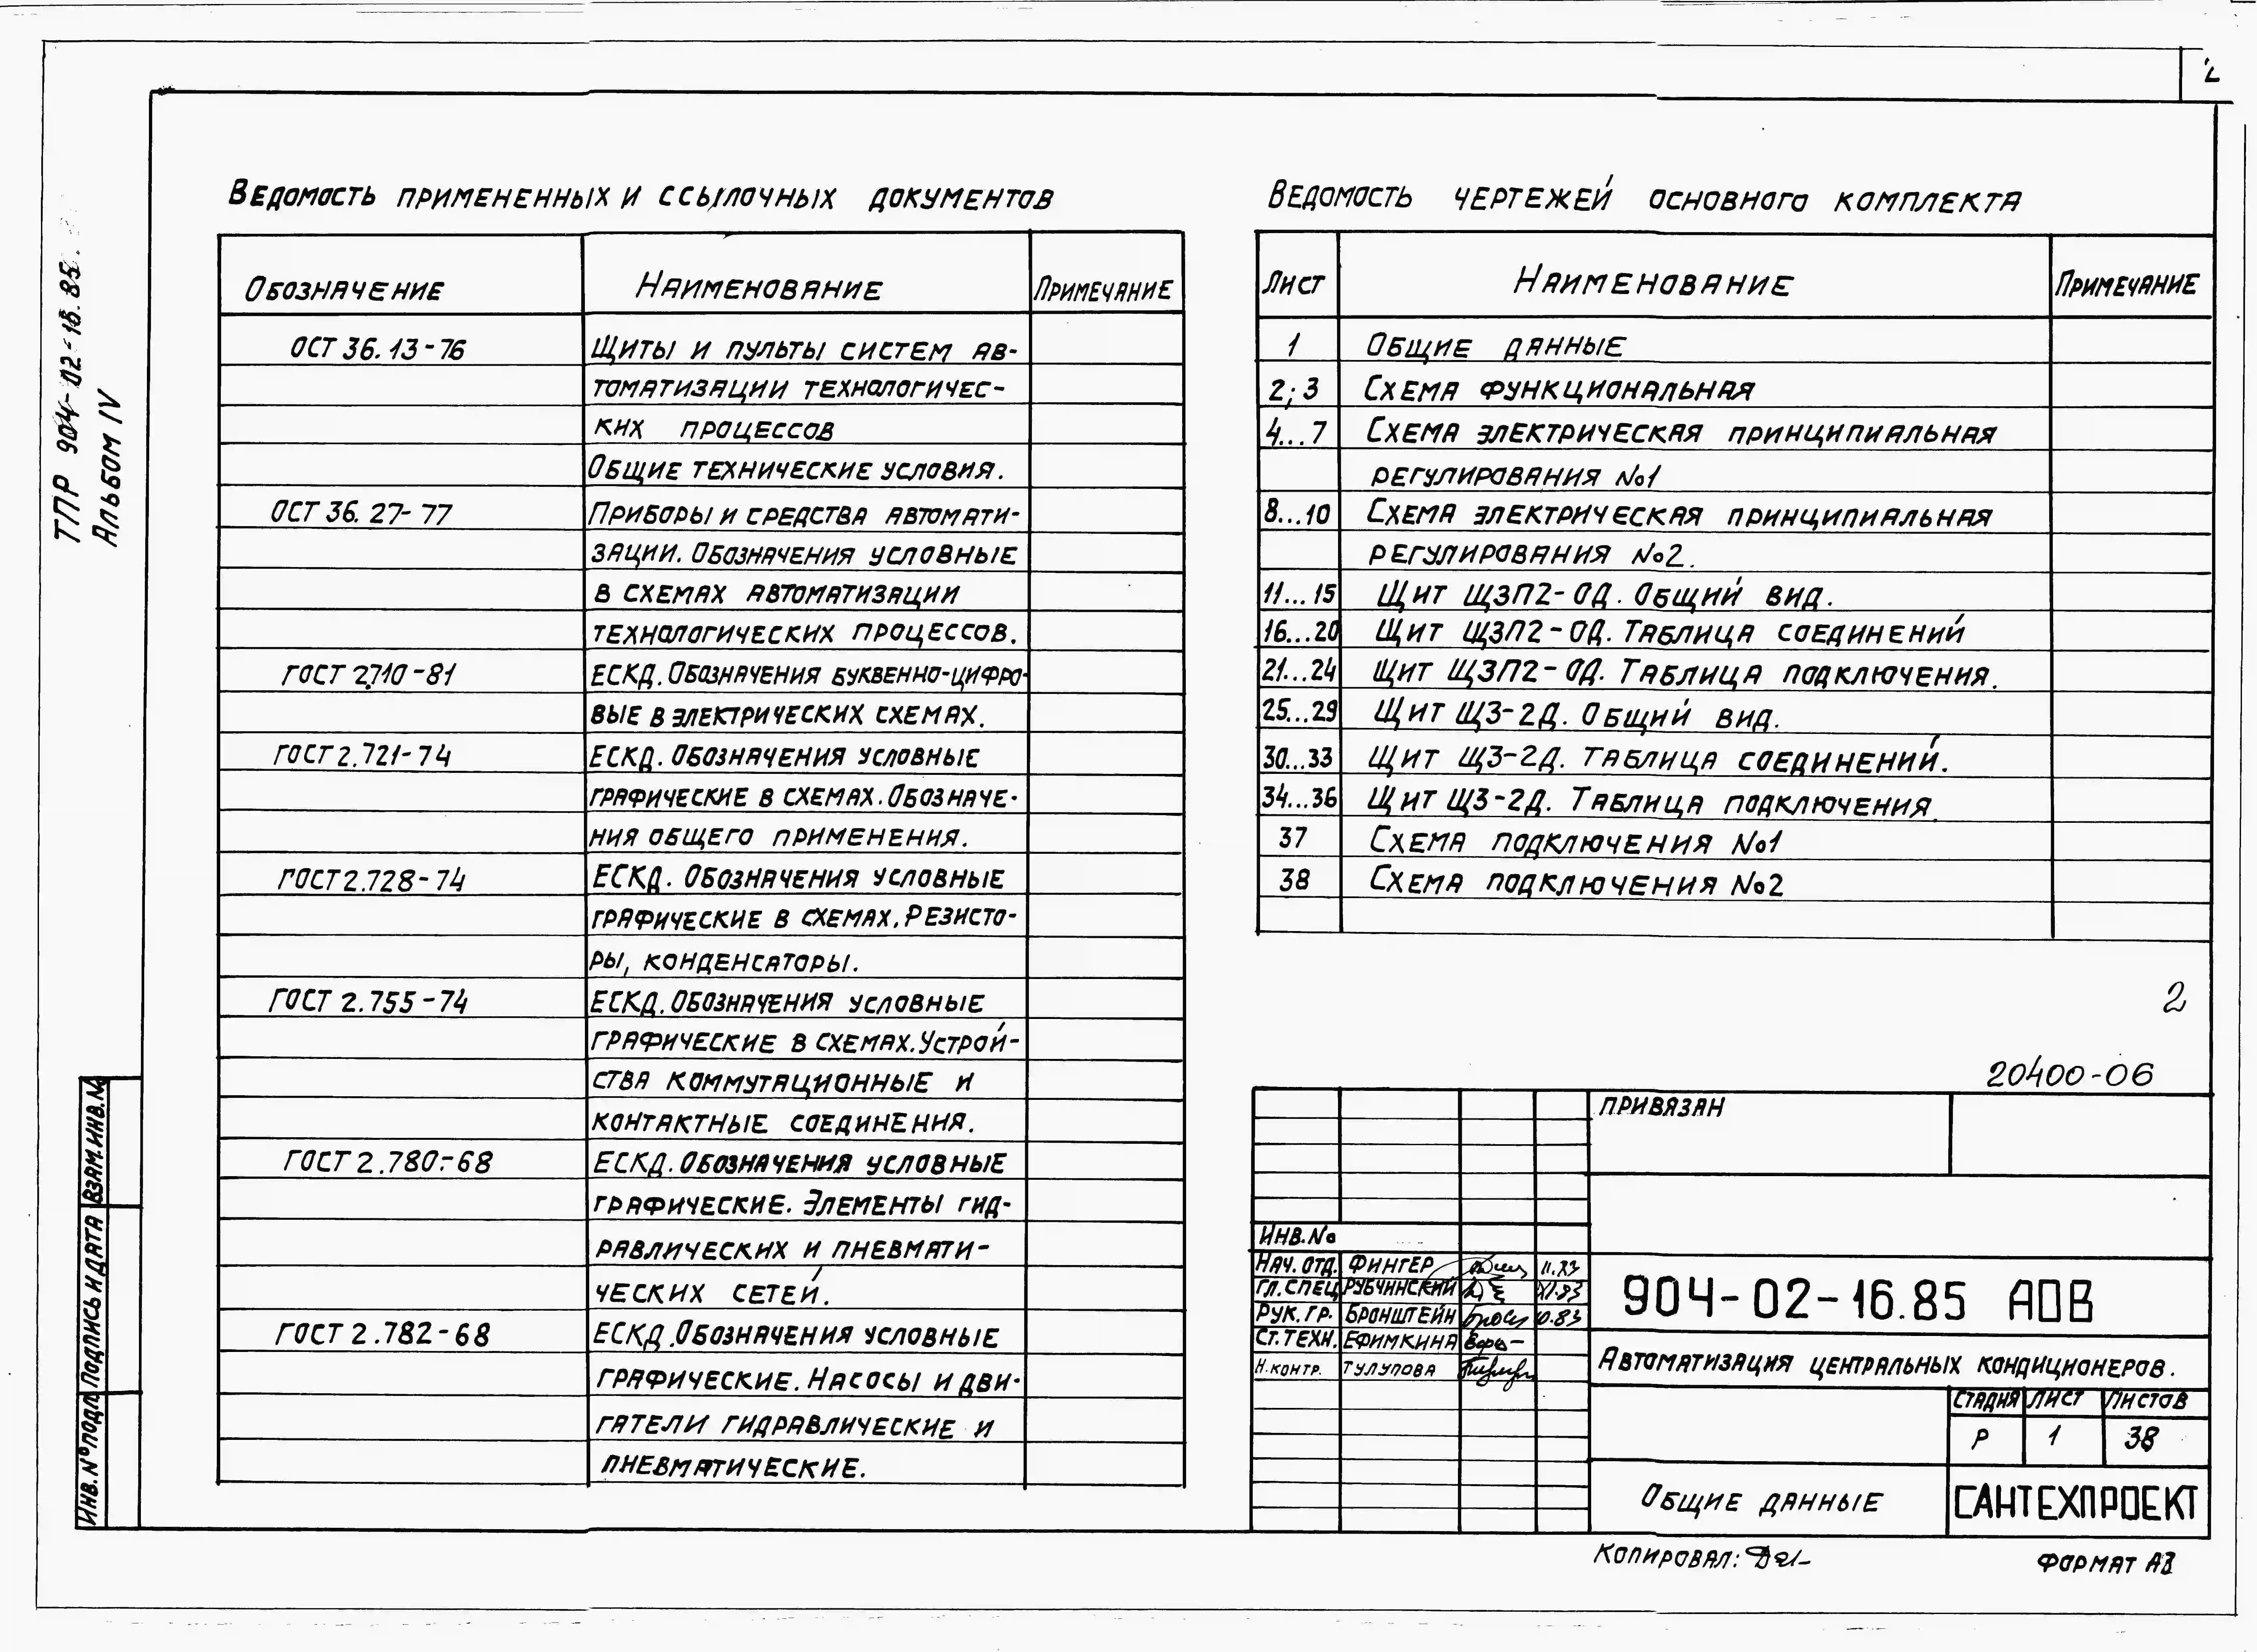 ТПР 904-02-16.85.
Альбом IV
Ведомость примененных и ссылочных документов
Обозначение Наименование Примечание
ОСТ 36.13-76 Щиты и пульты систем ав-
томатизации технологичес-
ких процессов
Общие технические условия.
ОСТ 36.27-77 Приборы и средства автомати-
зации. Обозначения условные
в схемах автоматизации
технологических процессов.
ГОСТ 2.710-81 ЕСКД. Обозначения буквенно-цифро-
вые в электрических схемах.
ГОСТ 2.721-74 ЕСКД. Обозначения условные
графические в схемах. Обозначе-
ния общего применения.
ГОСТ 2.728-74 ЕСКД. Обозначения условные
графические в схемах. Резисто-
ры, конденсаторы.
ГОСТ 2.755-74 ЕСКД. Обозначения условные
графические в схемах. Устрой-
ства коммутационные и
контактные соединения.
ГОСТ 2.780-68 ЕСКД. Обозначения условные
графические. Элементы гид-
равлических и пневмати-
ческих сетей.
ГОСТ 2.782-68 ЕСКД. Обозначения условные
графические. Насосы и дви-
гатели гидравлические и
пневматические.
Ведомость чертежей основного комплекта
Лист Наименование Примечание
1 Общие данные
2; 3 Схема функциональная
4...7 Схема электрическая принципиальная
регулирования №1
8...10 Схема электрическая принципиальная
регулирования №2.
11...15 Щит ЩЗП2-ОД. Общий вид.
16...20 Щит ЩЗП2-ОД. Таблица соединений
21...24 Щит ЩЗП2-ОД. Таблица подключения.
25...29 Щит ЩЗ-2Д. Общий вид.
30...33 Щит ЩЗ-2Д. Таблица соединений.
34...36 Щит ЩЗ-2Д. Таблица подключения.
37 Схема подключения №1
38 Схема подключения №2
2
20400-06
Привязан
Инв. №
Нач. отд. Фингер 11.83
Гл. спец Рубчинский XI.83
Рук. гр. Бронштейн 10.83
Ст. техн. Ефимкина
Н. контр. Тулупова
904-02-16.85 АОВ
Автоматизация центральных кондиционеров.
Стадия Лист Листов
Р 1 38
Общие данные
САНТЕХПРОЕКТ
Копировал:
Формат А3
Взам. инв. №
Подпись и дата
Инв. № подл.